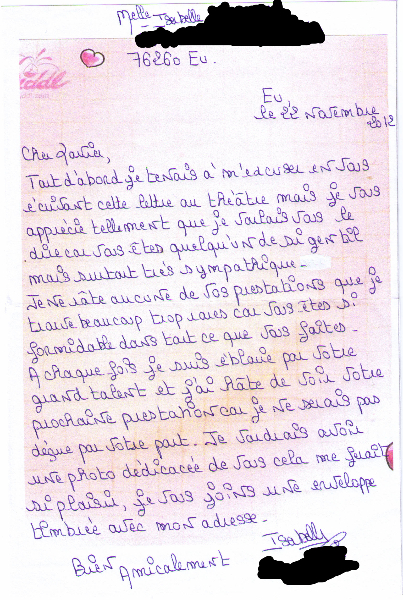 Melle Isabelle
76260 Eu.
Eu
le 22 Novembre
2012
Cher Xavier,
Tout d'abord je tenais à m'excuser en vous
écrivant cette lettre au théâtre mais je vous
apprécie tellement que je voulais vous le
dire car vous êtes quelqu'un de si gentil
mais surtout très sympathique.
Je ne rate aucune de vos prestations que je
trouve beaucoup trop rares car vous êtes si
formidable dans tout ce que vous faites.
A chaque fois je suis éblouie par votre
grand talent et j'ai hâte de voir votre
prochaine prestation car je ne serais pas
déçue par votre part. Je voudrais avoir
une photo dédicacée de vous cela me ferait
si plaisir, je vous joins une enveloppe
timbrée avec mon adresse.
Bien Amicalement
Isabelle